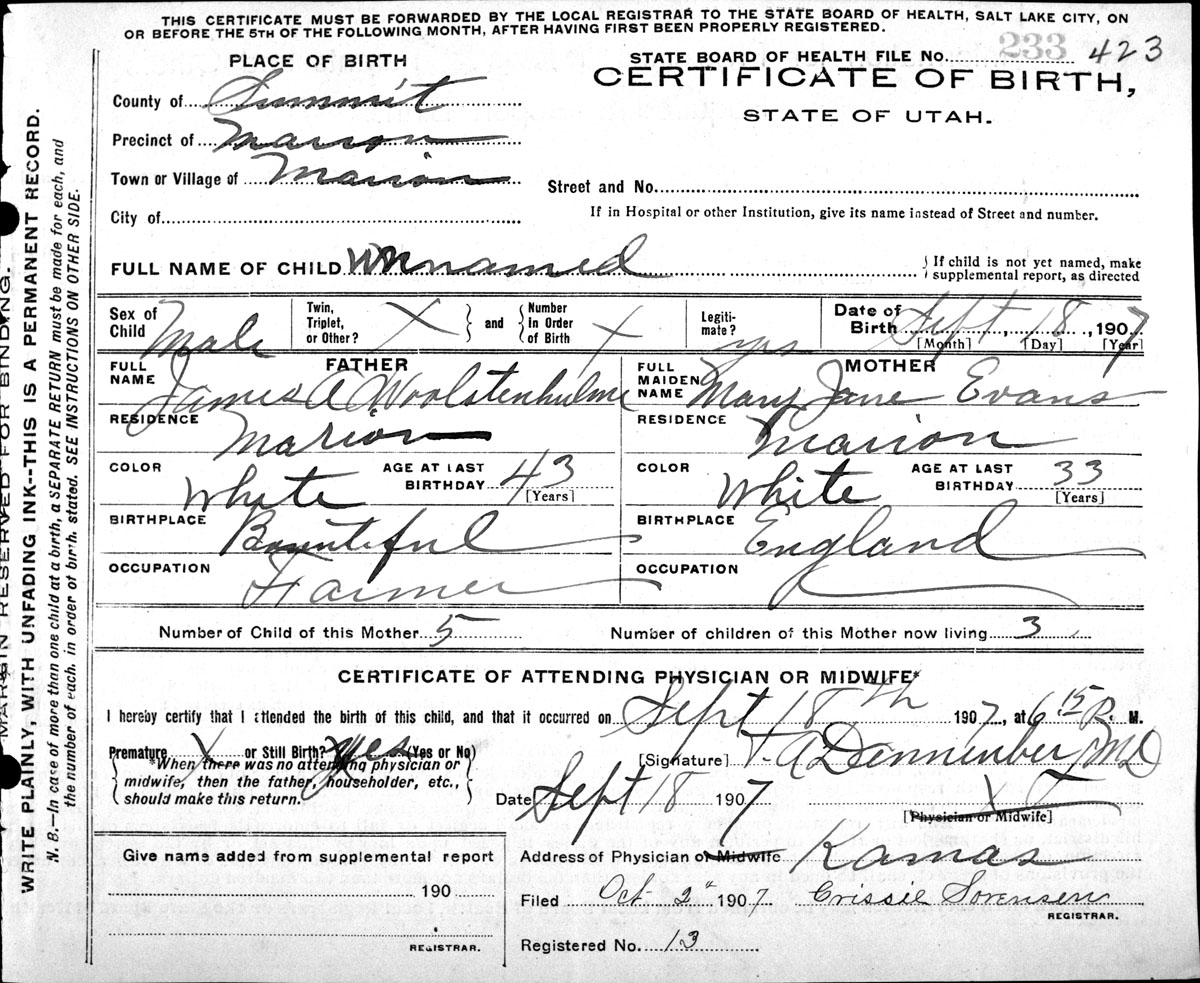 THIS CERTIFICATE MUST BE FORWARDED BY THE LOCAL REGISTRAR TO THE STATE BOARD OF HEALTH, SALT LAKE CITY, ON
OR BEFORE THE 5TH OF THE FOLLOWING MONTH, AFTER HAVING FIRST BEEN PROPERLY REGISTERED.
PLACE OF BIRTH
STATE BOARD OF HEALTH FILE No. 233 423
CERTIFICATE OF BIRTH,
STATE OF UTAH.
County of Summit
Precinct of Marion
Town or Village of Marion
Street and No.
City of
If in Hospital or other Institution, give its name instead of Street and number.
FULL NAME OF CHILD Unnamed { If child is not yet named, make
supplemental report, as directed
Sex of Child Male Twin, Triplet, or Other? X } and { Number In Order of Birth X Legiti-mate? yes Date of Birth Sept 18, 1907
[Month] [Day] [Year]
FATHER MOTHER
FULL NAME James A Woolstenhulme FULL MAIDEN NAME Mary Jane Evans
RESIDENCE Marion RESIDENCE Marion
COLOR White AGE AT LAST BIRTHDAY 43 [Years] COLOR White AGE AT LAST BIRTHDAY 33 [Years]
BIRTHPLACE Bountiful BIRTHPLACE England
OCCUPATION Farmer OCCUPATION
Number of Child of this Mother 5 Number of children of this Mother now living 3
CERTIFICATE OF ATTENDING PHYSICIAN OR MIDWIFE*
I hereby certify that I attended the birth of this child, and that it occurred on Sept 18th 1907, at 6 15 P. M.
Premature X or Still Birth? Yes (Yes or No)
[Signature] MD
{ *When there was no attending physician or
midwife, then the father, householder, etc.,
should make this return. }
Date Sept 18 1907
[Physician or Midwife]
Give name added from supplemental report
190
REGISTRAR.
Address of Physician or Midwife Kamas
Filed Oct 2" 1907 Crissie Sorensen
REGISTRAR.
Registered No. 13
MARGIN RESERVED FOR BINDING.
WRITE PLAINLY, WITH UNFADING INK--THIS IS A PERMANENT RECORD.
N. B.—In case of more than one child at a birth, a SEPARATE RETURN must be made for each, and
the number of each, in order of birth, stated. SEE INSTRUCTIONS ON OTHER SIDE.